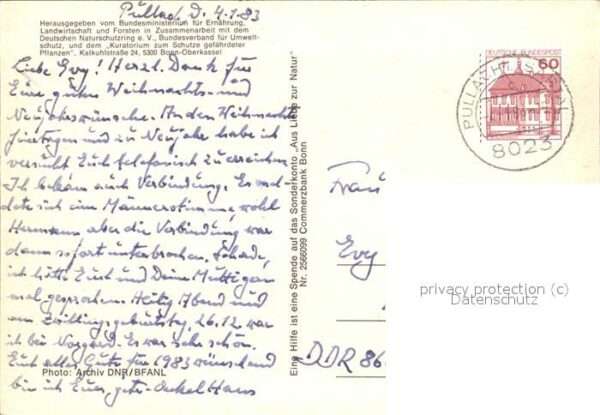 Pullach, D. 4.1.83
Herausgegeben vom Bundesministerium für Ernährung,
Landwirtschaft und Forsten in Zusammenarbeit mit dem
Deutschen Naturschutzring e. V., Bundesverband für Umwelt-
schutz, und dem „Kuratorium zum Schutze gefährdeter
Pflanzen", Kalkuhlstraße 24, 5300 Bonn-Oberkassel
Liebe Evy! Herzl. Dank für
Eure guten Weihnachts- und
Neujahrswünsche. An den Weihnachts
feiertagen und zu Neujahr habe ich
versucht Euch telefonisch zu erreichen
Ich bekam auch Verbindung. Es mel
dete sich eine Männerstimme, wohl
Hermann aber die Verbindung war
dann sofort unterbrochen. Schade,
ich hätte Euch und Deine Mutti gern
mal gesprochen. Heilig Abend und
am Zwillingsgeburtstag, 26.12. war
ich bei Es war sehr schön.
Euch alles Gute für 1983 wünschend
bin ich Euer, Onkel Hans
Photo: Archiv DNR/BFANL
Eine Hilfe ist eine Spende auf das Sonderkonto „Aus Liebe zur Natur"
Nr. 2566099 Commerzbank Bonn
DEUTSCHE BUNDESPOST
60
PULLACH I. ISARTAL
8023
Frau
Evy
DDR 86
privacy protection (c)
Datenschutz